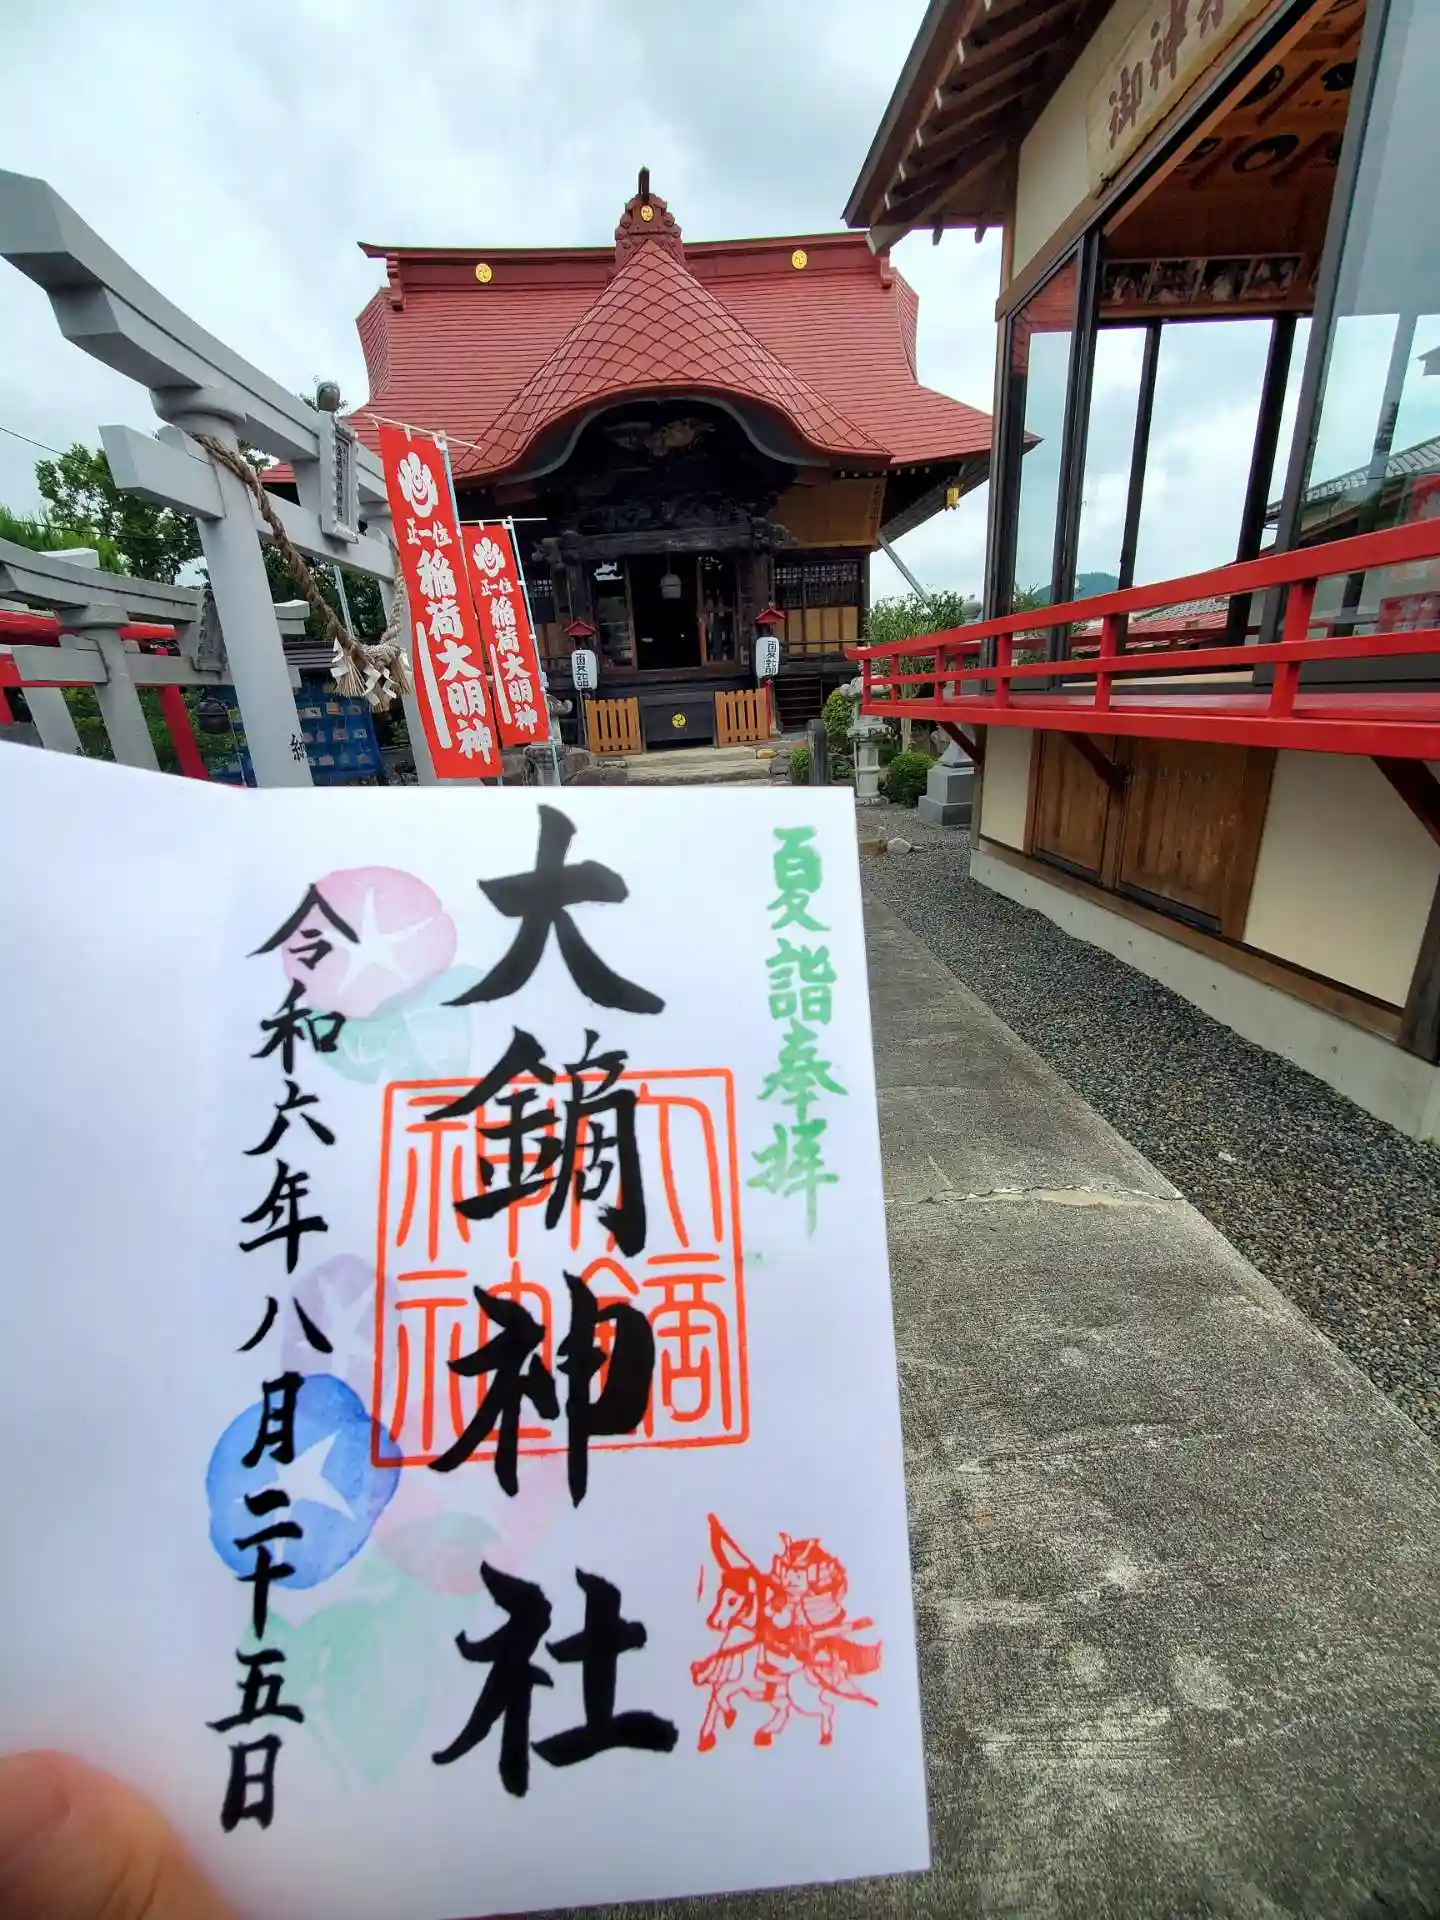 御神楽
正一位 稲荷大明神
正一位 稲荷大明神
夏詣
夏詣
夏詣奉拝
大鏑神社
令和六年八月二十五日